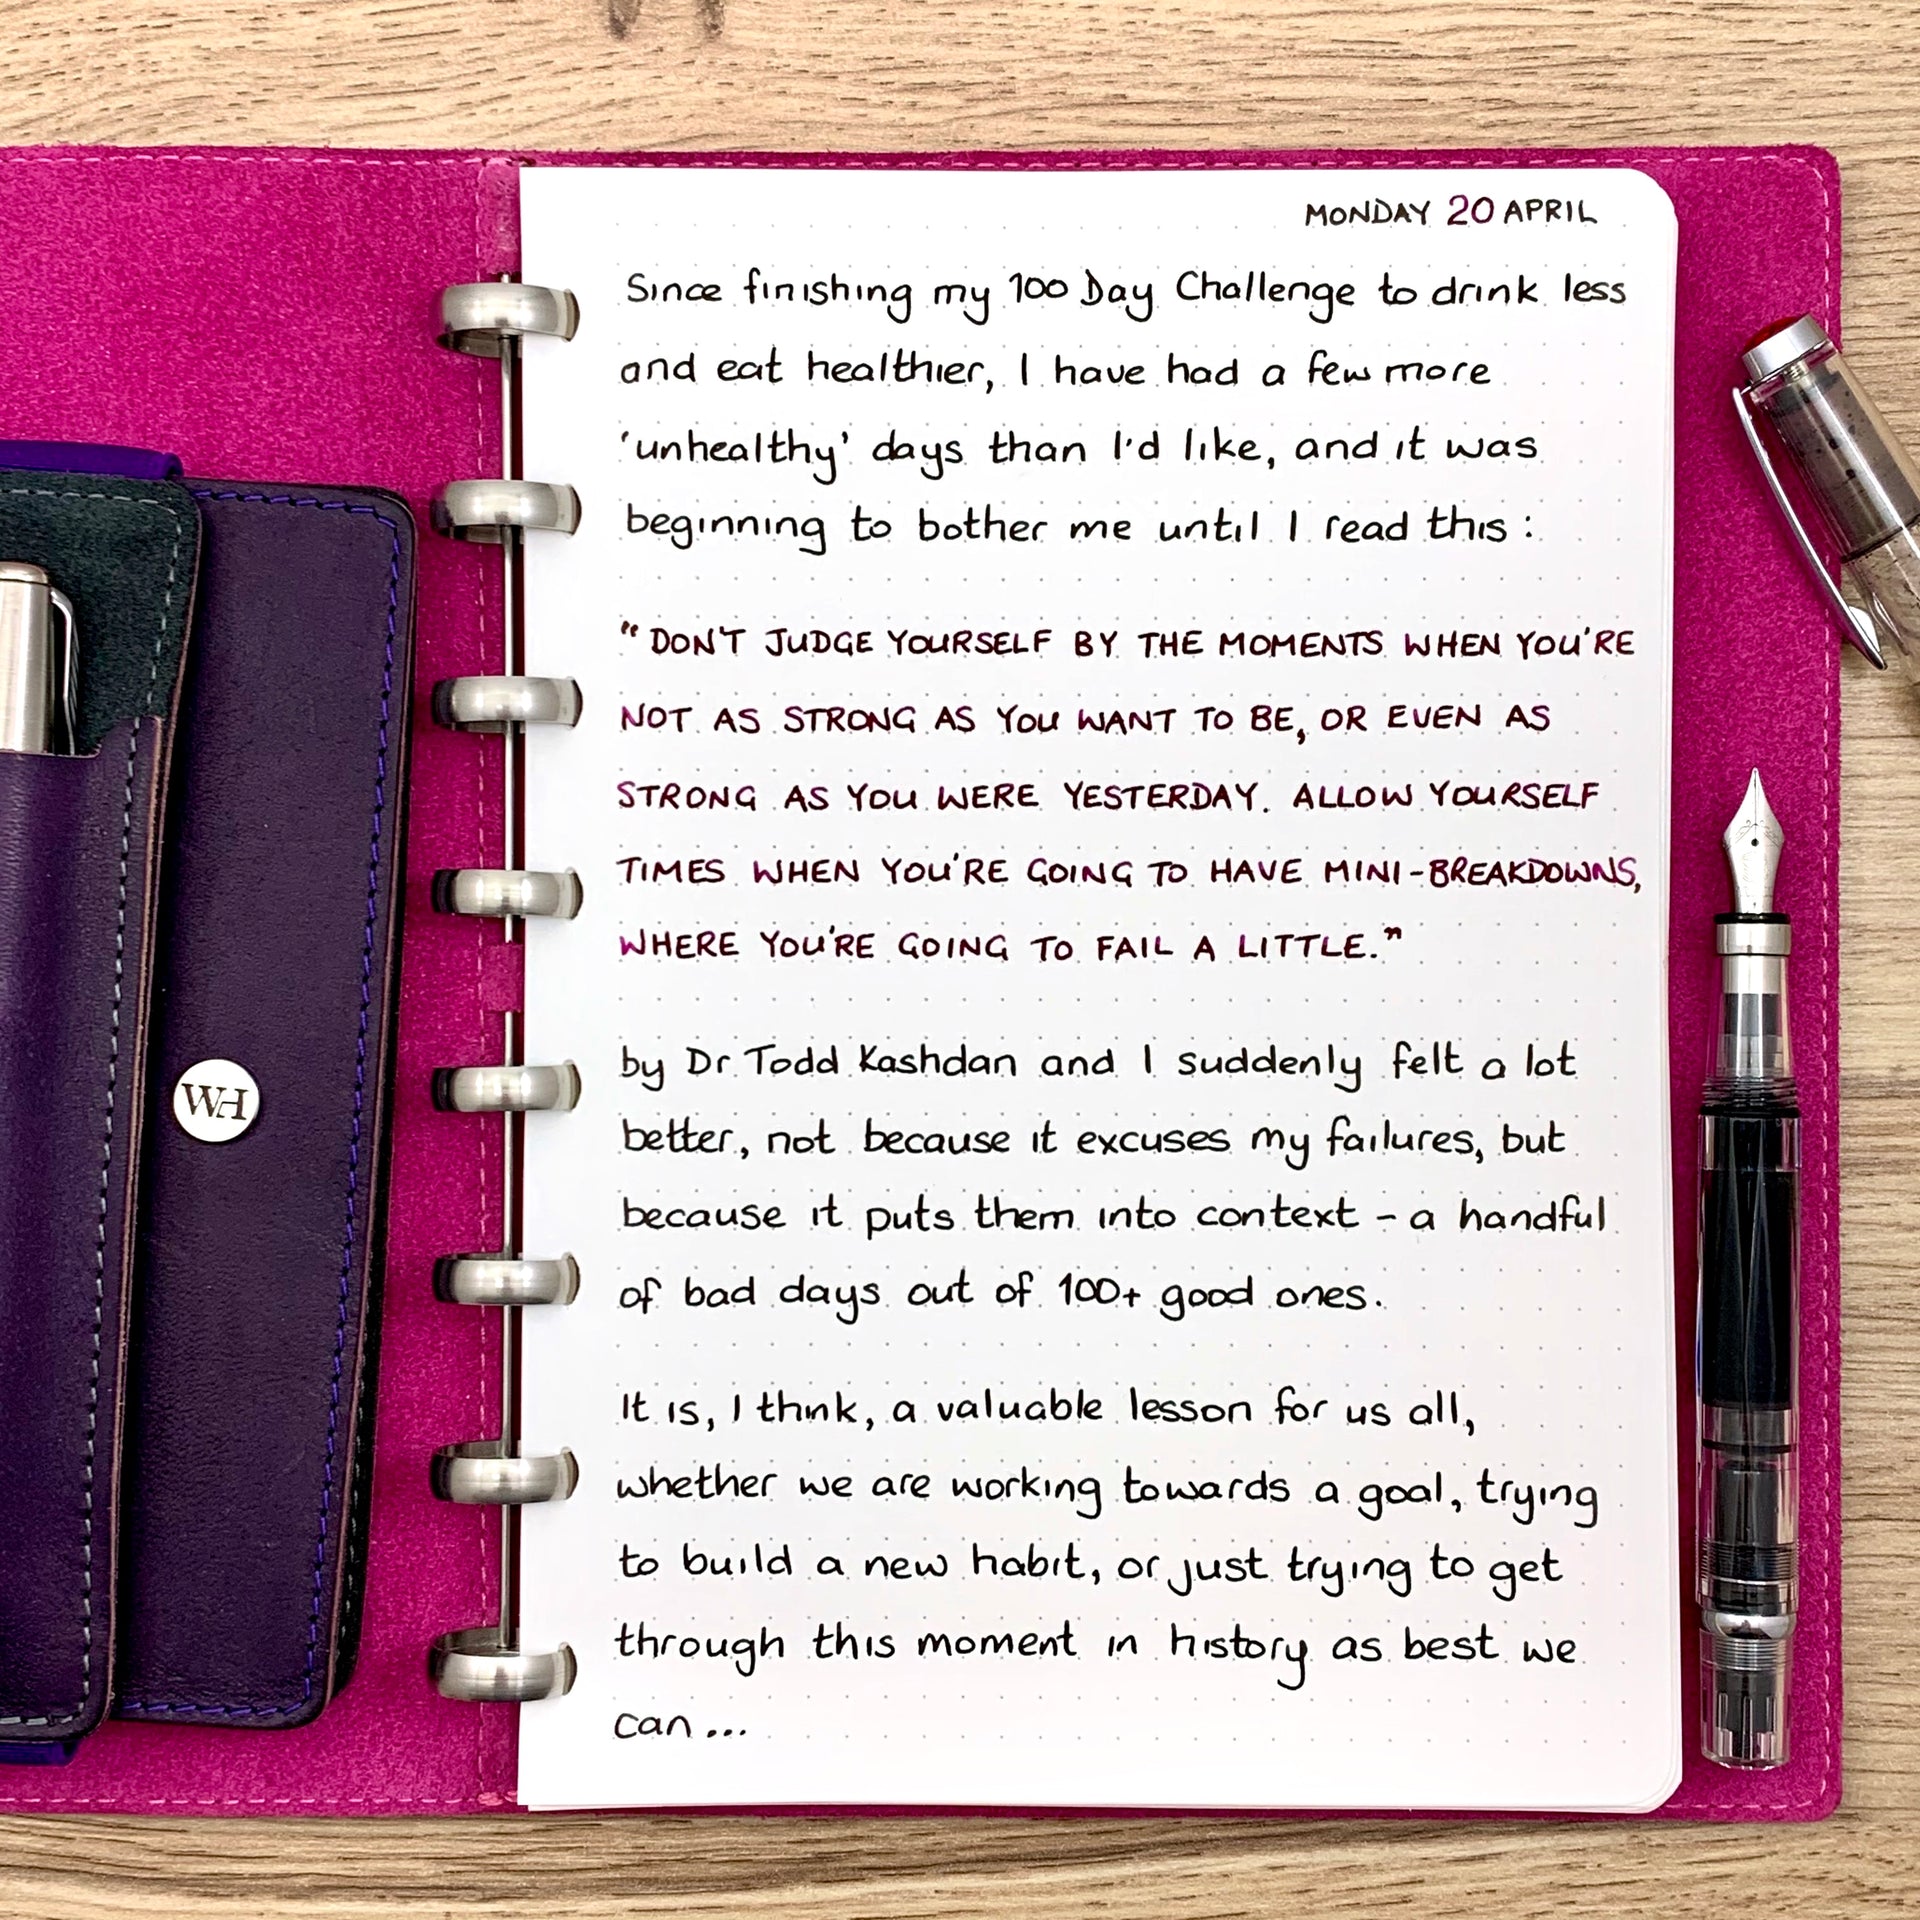 MONDAY 20 APRIL
Since finishing my 100 Day Challenge to drink less
and eat healthier, I have had a few more
'unhealthy' days than I'd like, and it was
beginning to bother me until I read this :
"DON'T JUDGE YOURSELF BY THE MOMENTS WHEN YOU'RE
NOT AS STRONG AS YOU WANT TO BE, OR EVEN AS
STRONG AS YOU WERE YESTERDAY. ALLOW YOURSELF
TIMES WHEN YOU'RE GOING TO HAVE MINI-BREAKDOWNS,
WHERE YOU'RE GOING TO FAIL A LITTLE."
by Dr Todd Kashdan and I suddenly felt a lot
better, not because it excuses my failures, but
because it puts them into context - a handful
of bad days out of 100+ good ones.
It is, I think, a valuable lesson for us all,
whether we are working towards a goal, trying
to build a new habit, or just trying to get
through this moment in history as best we
can...
WH